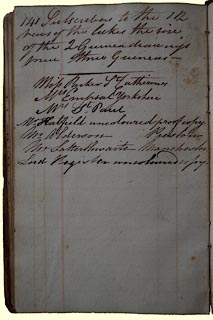 141 Subscribers to the 12
views of the lakes the size
of the 2 Guinea drawings
price three Guineas
Miss Parker St Catherines
Mrs Yorkshire
Mrs St Paul
Mr Hatfield uncoloured proof copy
Mr Preston
Mr Satterthwaite Manchester
Lord Register uncoloured copy